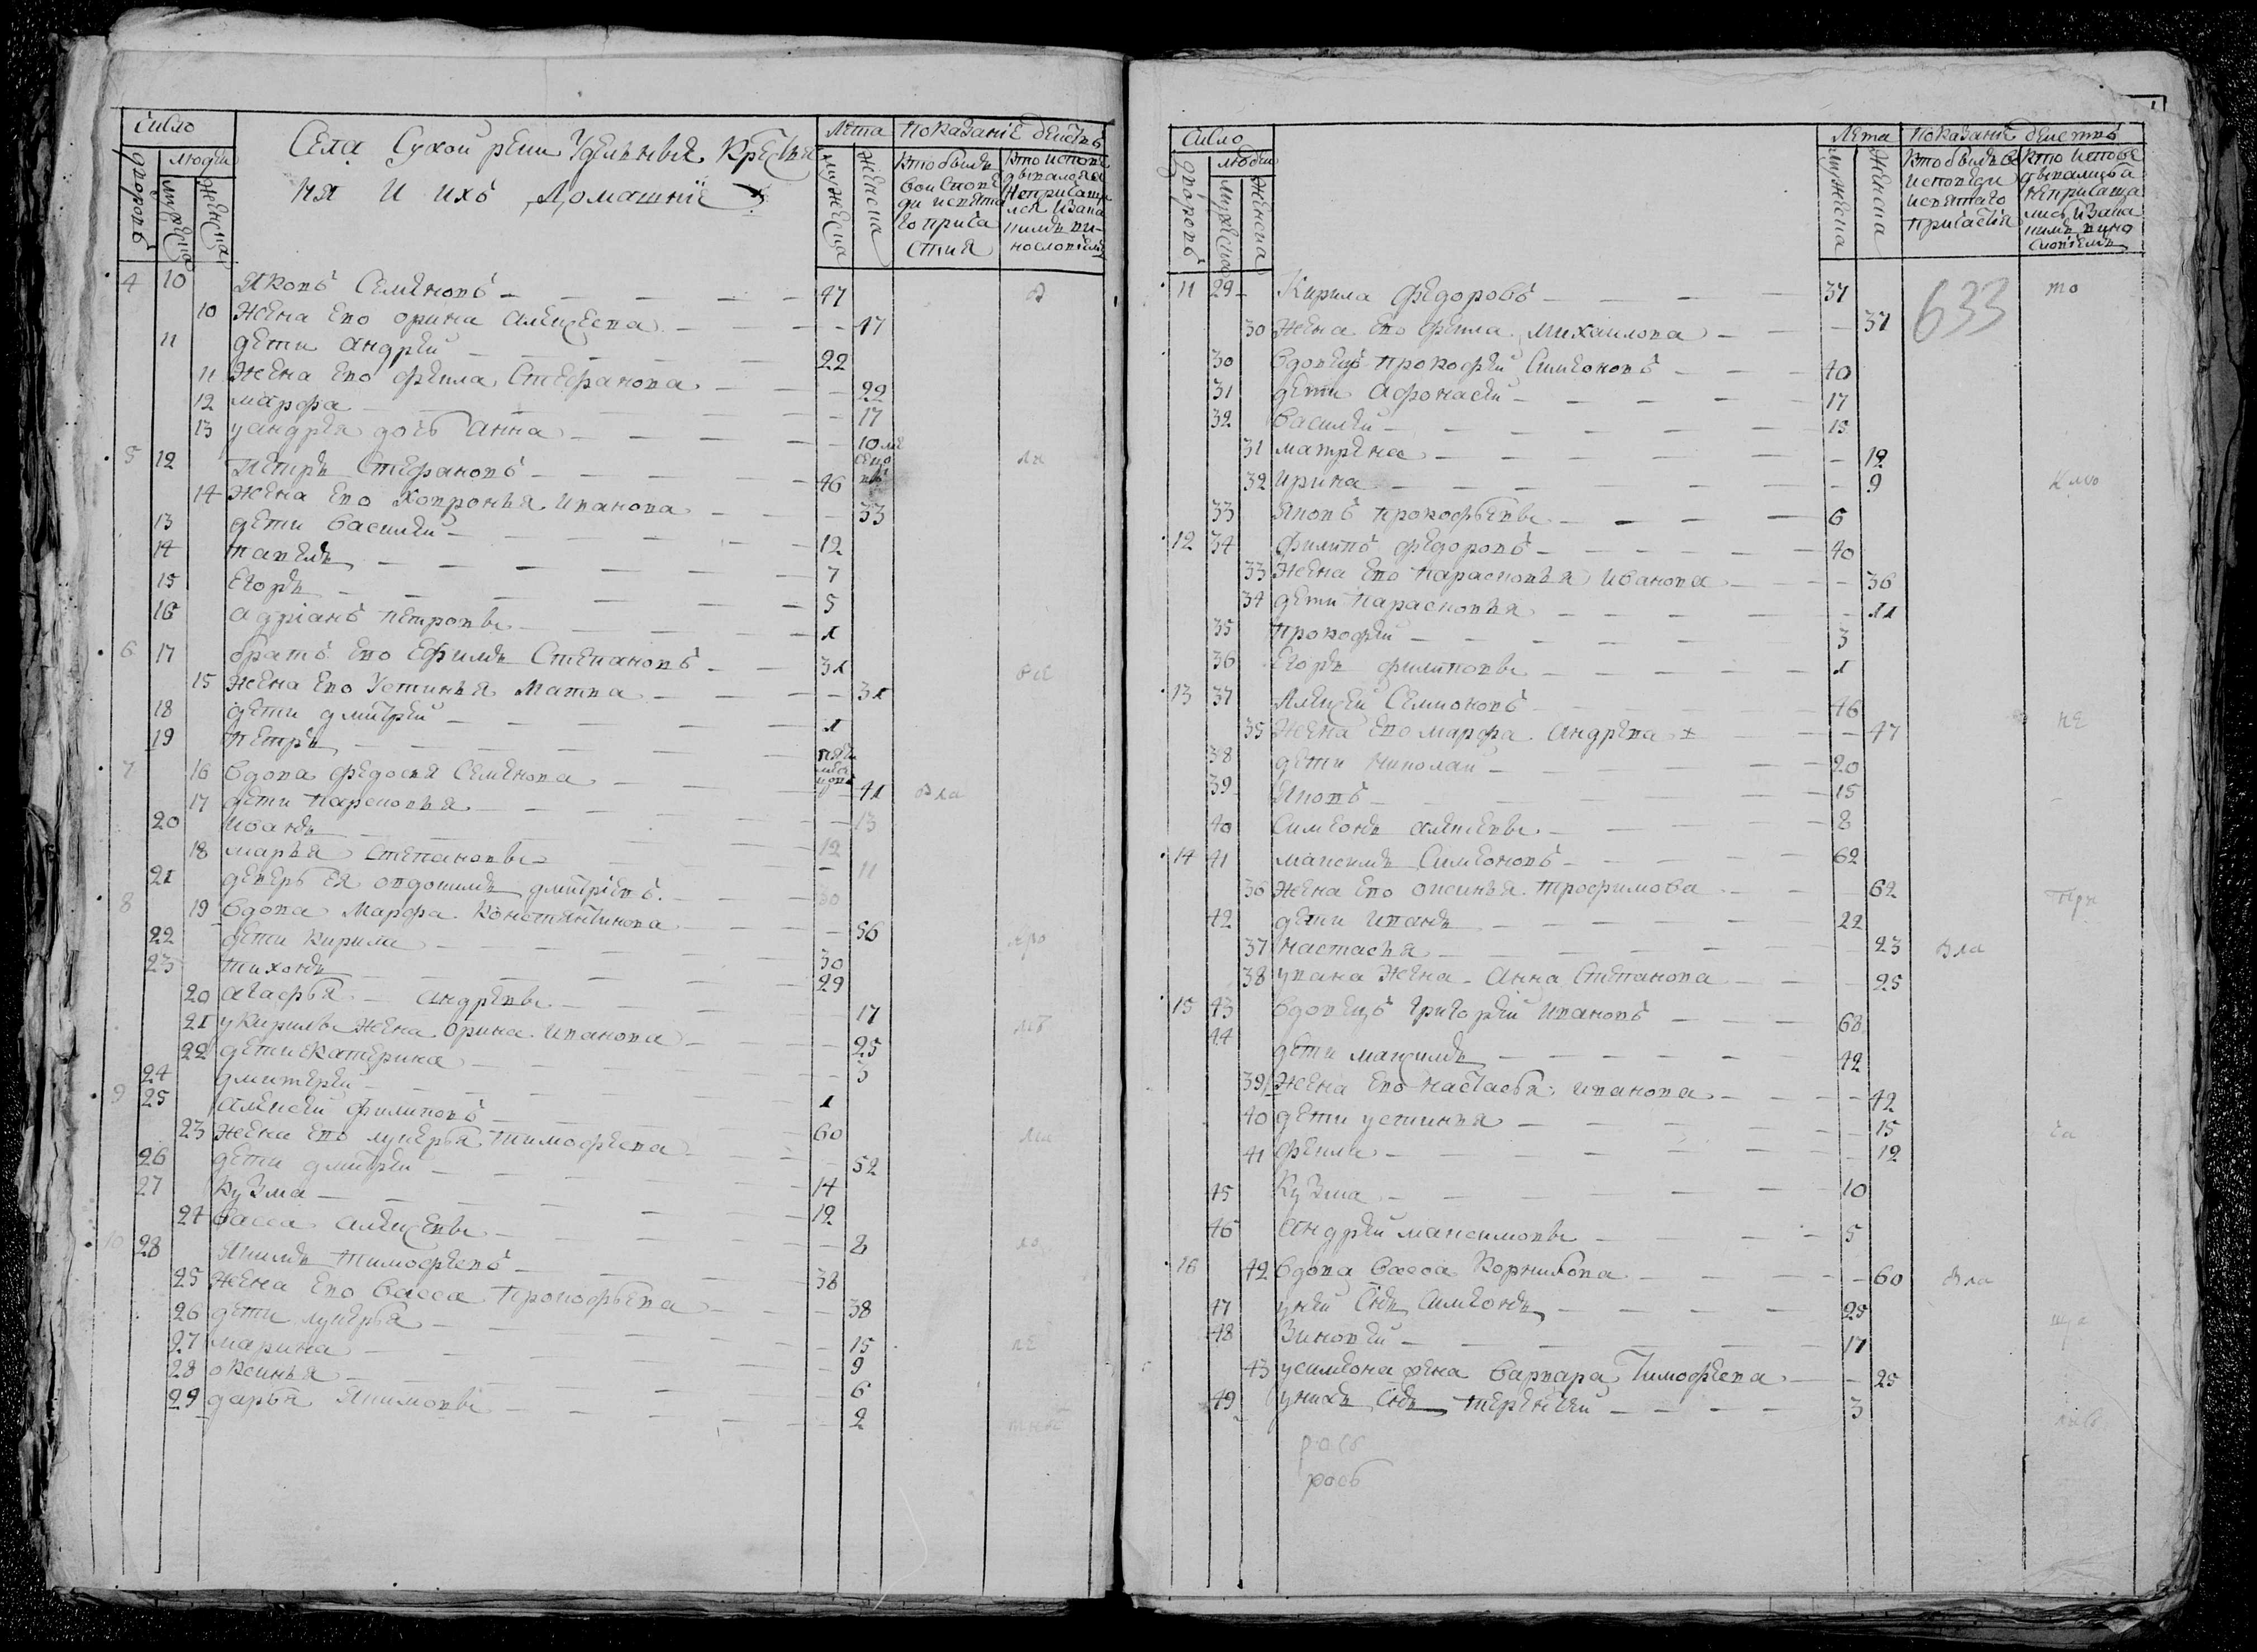 Число
Села Сухой речки Удельныя Крестья
ня и ихъ Домашнїе
Лета
Показанїе действъ
дворовъ
людей
мужеска
женска
мужеска
женска
кто былъ
во испове
ди и святa
го прича
стия
кто испове
дывался а
не причащ
лся и за ка
кимъ ви-
нословїемъ
4 10 Яковъ Семеновъ 47
10 жена ево орина алексеева 47
11 дети андрей 22
11 жена ево фекла Стефанова 22
12 марфа 17
13 у андрея дочь анна 10 ме
сецо
въ
5 12 Петръ Стефановъ 46
14 жена ево Ховронья иванова 33
13 дети василей 12
14 павелъ 7
15 Егоръ 5
16 адрїанъ петровы 1
6 17 братъ ево Ефимъ Степановъ 31
15 жена ево Устинья Маткa 31
18 дети дмитрей 1
19 петръ
7 16 вдова федосья Семенова 41 Вла
17 дети парсковья 13
20 иванъ 12
18 марья степановы 11
21 деверь ея овдокимъ дмитрїевъ 30
8 19 вдова Марфа Константинова 56
22 дети кирила 30
23 тихонъ 29
20 агафья андревы 17
21 у кирилы жена орина иванова 25
22 дети катерина 3
24 дмитерей 1
9 25 алексей филиповъ 60
23 жена ево лукерья тимофеева 52
26 дети дмитрей 14
27 кузма 12
24 васса алексеевы 2
10 28 Якимъ тимофеевъ 38
25 жена ево васса прокофьева 38
26 дети лукерья 15
27 марина 9
28 оксинья 6
29 дарья Якимовы 2
Число
Лета
Показанїе действъ
дворовъ
людей
мужеска
женска
мужеска
женска
кто былъ во
исповеди
и святаго
причастїя
кто испове
дывались а
не причаща
лись и за ка
кимъ вино
словїемъ
11 29 Кирила федоровъ 37 то
633
30 жена ево фекла михаилова 37
30 вдовецъ прокофей Симеоновъ 40
31 дети афонасей 17
32 василей 15
31 матрена 12
32 ирина 9
33 Яковъ прокофьевы 6
12 34 филипъ федоровъ 40
33 жена ево парасковья иванова 36
34 дети парасковья 11
35 прокофей 3
36 Егоръ филиповы 1
13 37 Алексей Семионовъ 46
35 жена ево марфа андрева + 47 не
38 дети николай 20
39 Яковъ 15
40 Симеонъ алексевы 8
14 41 максимъ Симеоновъ 62
36 жена ево оксинья трофимова 62
42 дети иванъ 22
37 настасья 23 Вла
38 у вана жена анна Степанова 25
15 43 вдовецъ григорей ивановъ 68
44 дети максимъ 42
39 жена ево настасья иванова 42
40 дети устинья 15
41 фекла 12
45 Кузма 10
46 андрей максимовы 5
16 42 вдова васса Корнилова 60 Вла
47 у ней Снъ Симеонъ 25
48 Зиновей 17
43 у симеона жена варвара Тимофеева 25
49 у нихъ Снъ терентей 3
рось
рось